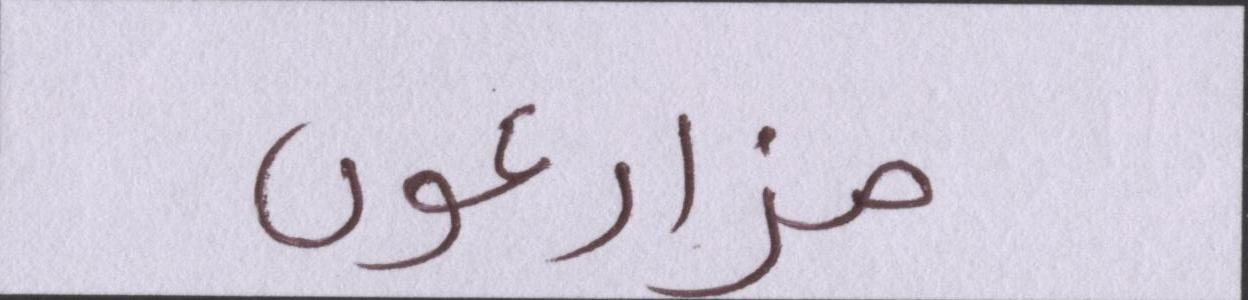 مزارعون